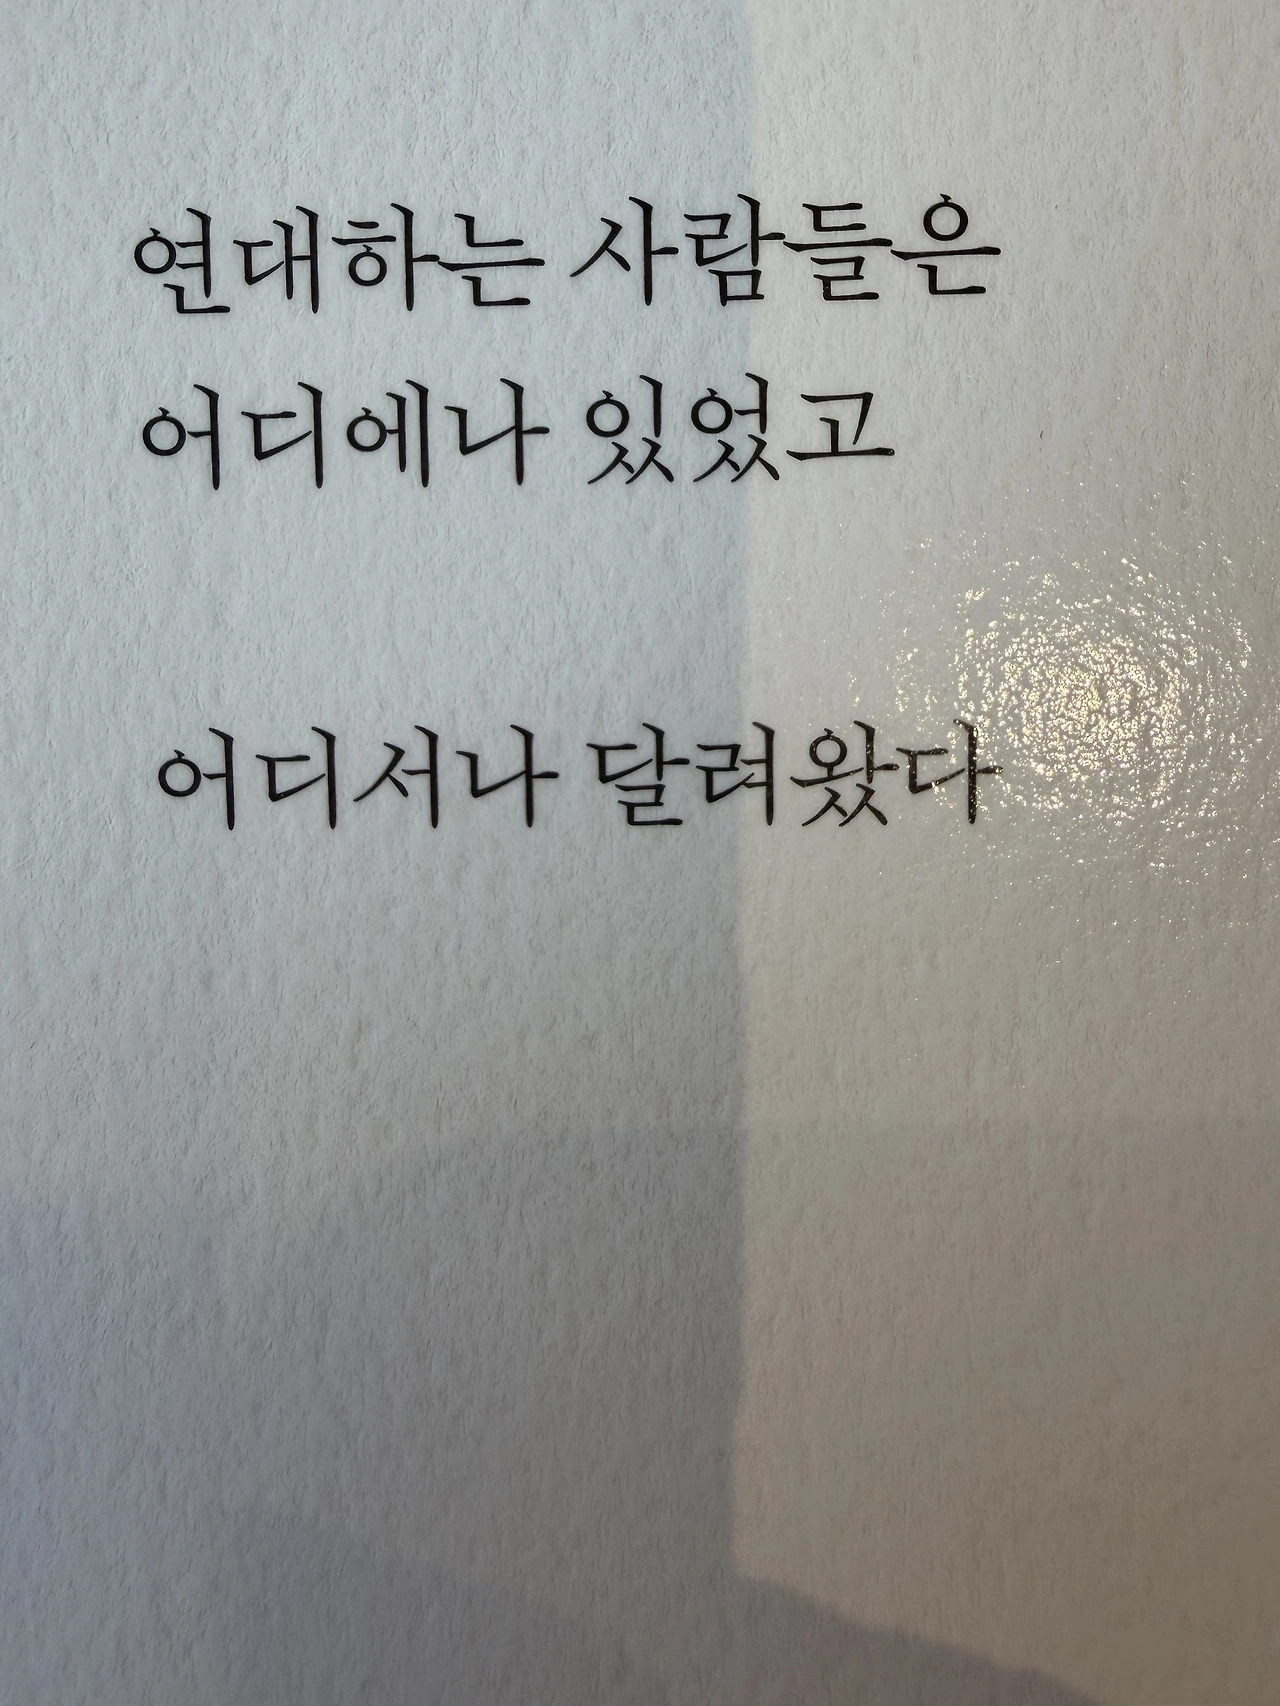 연대하는 사람들은
어디에나 있었고
어디서나 달려왔다